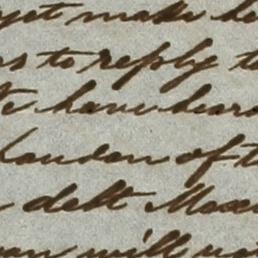 yet make he
to reply t
have hear
London of t
debt Mess
will